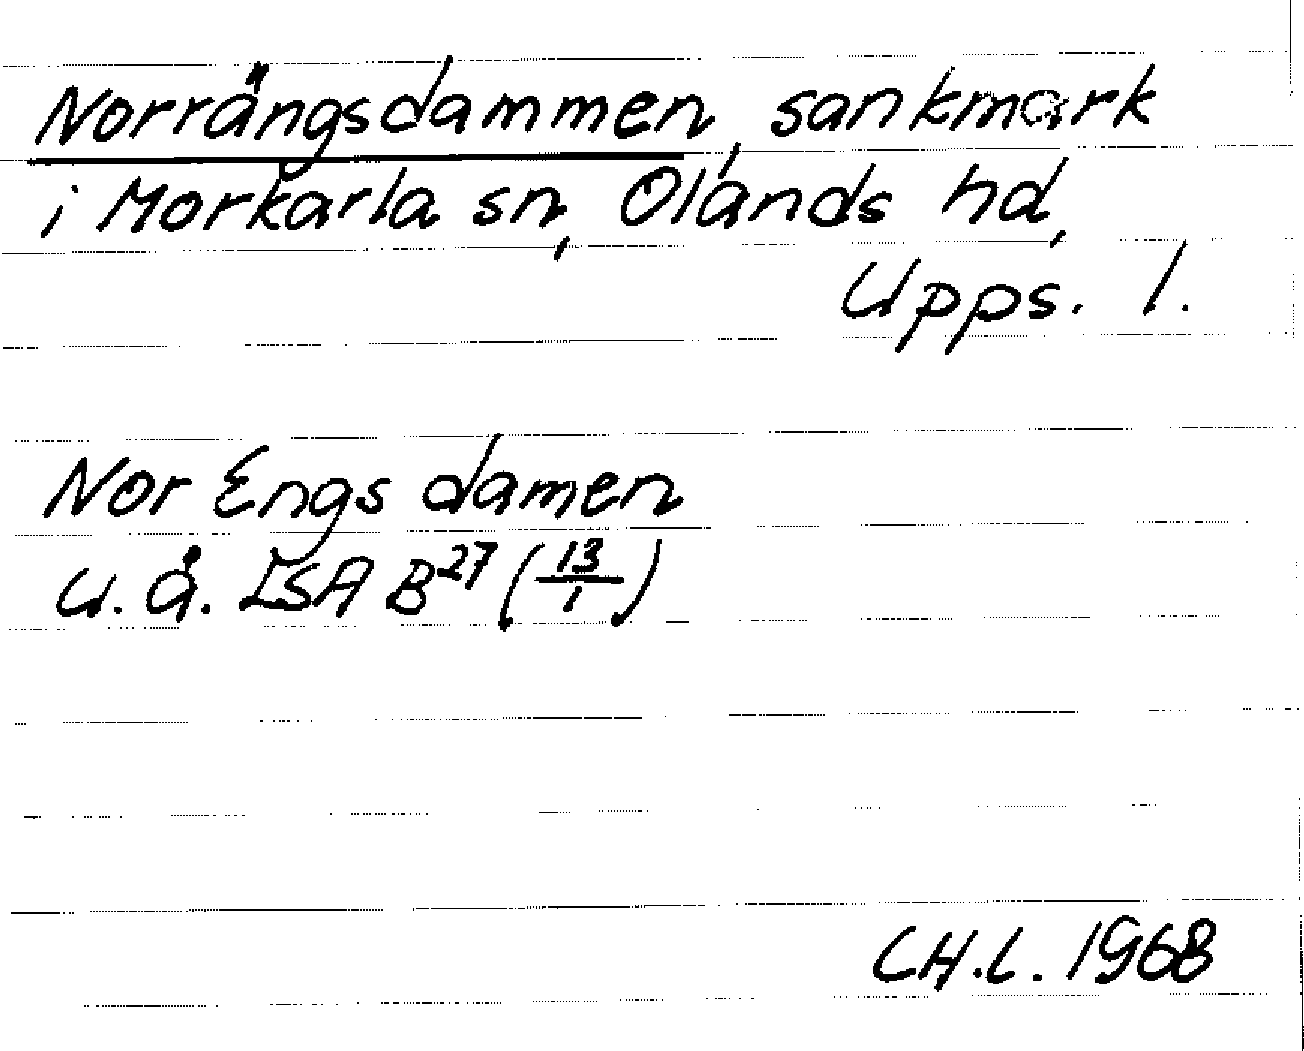 Norrängsdammen, sankmark
i Morkarla sn, Olands hd,
Upps. l.
Nor Engs damen
u. å. LSA B27 (13/1)
CH.L. 1968